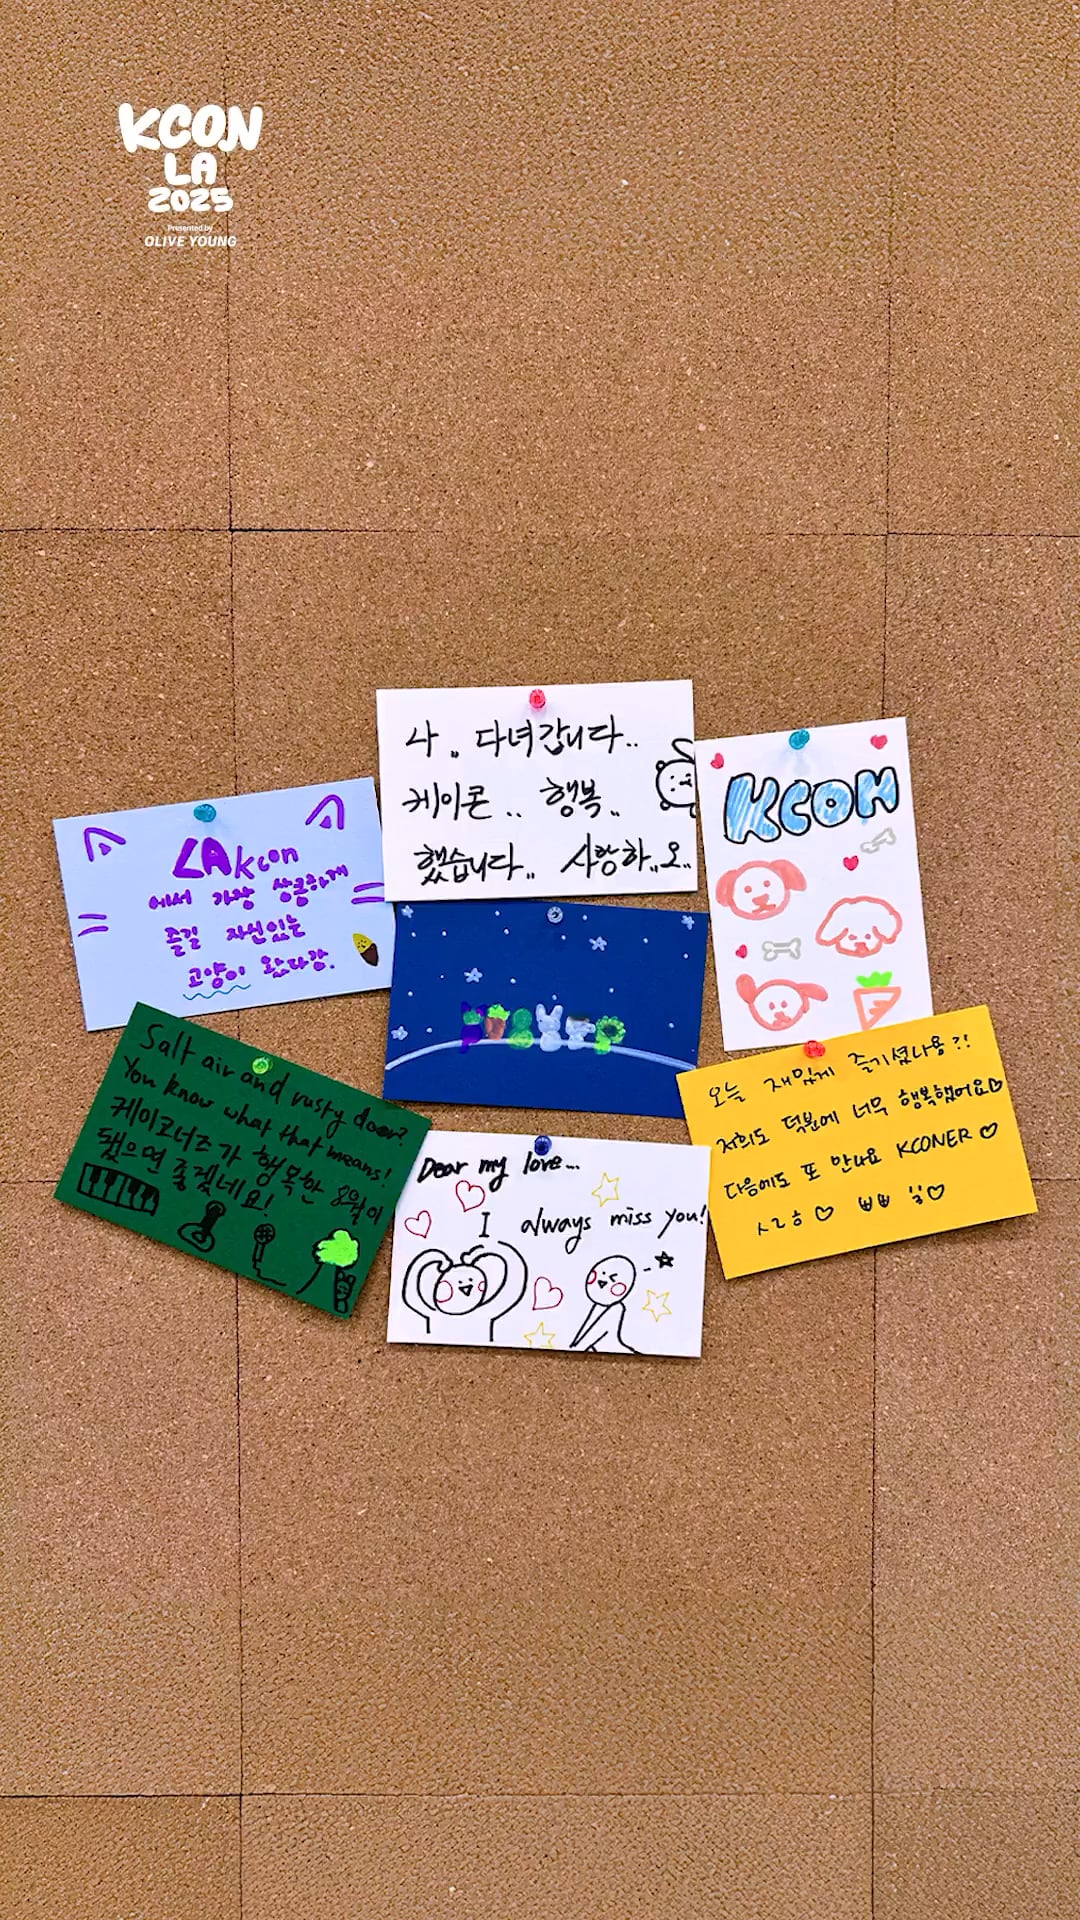 KCON
LA
2025
Presented by
OLIVE YOUNG
나.. 다녀갑니다..
케이콘.. 행복..
했습니다.. 사랑하..오..
KCON
LA Kcon
에서 가장 상큼하게
즐길 자신있는
고양이 왔다감.
Salt air and rusty door?
You know what that means!
케이코너즈가 행복한 8월이
됐으면 좋겠네요!
오늘 재밌게 즐기셨나용?!
저희도 덕분에 너무 행복했어요♡
다음에도 또 만나요 KCONER ♡
ㅅㄹㅎ ♡ ㅃㅃ
Dear my love...
I always miss you!